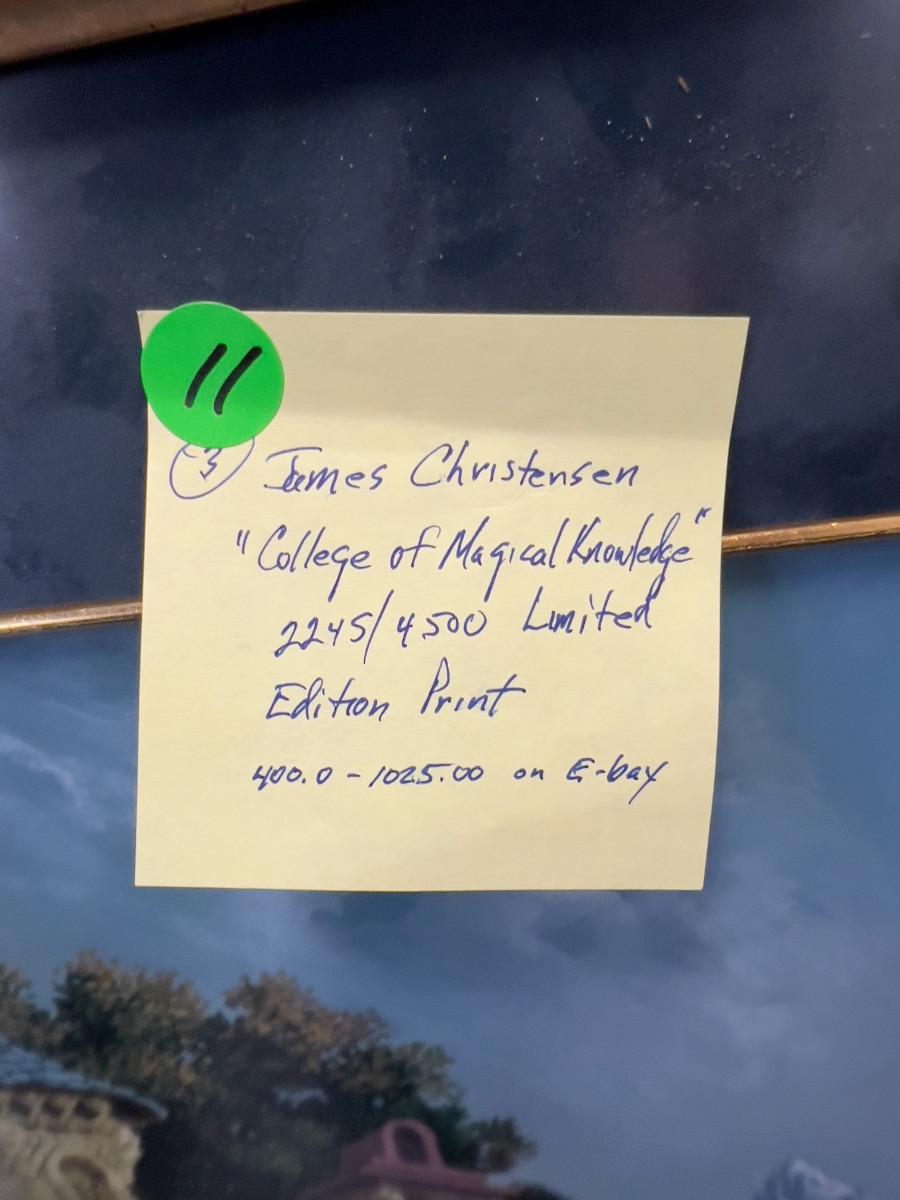 11
3 James Christensen
"College of Magical Knowledge"
2245/4500 Limited
Edition Print
400.0 - 1025.00 on E-bay